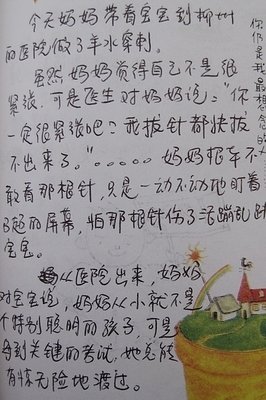 今天妈妈带着宝宝到柳州
的医院做了羊水穿刺。
虽然妈妈觉得自己不是很
紧张,可是医生对妈妈说:“你
一定很紧张吧?我拔针都快拔
不出来了。”……妈妈根本不
敢看那根针,只是一动不动地盯着
B超的屏幕,怕那根针伤了活蹦乱跳
宝宝。
从医院出来,妈妈
对宝宝说,妈妈从小就不是
个特别聪明的孩子,可是
每到关键的考试,她总能
有惊无险地渡过。
你仍是我最想念的